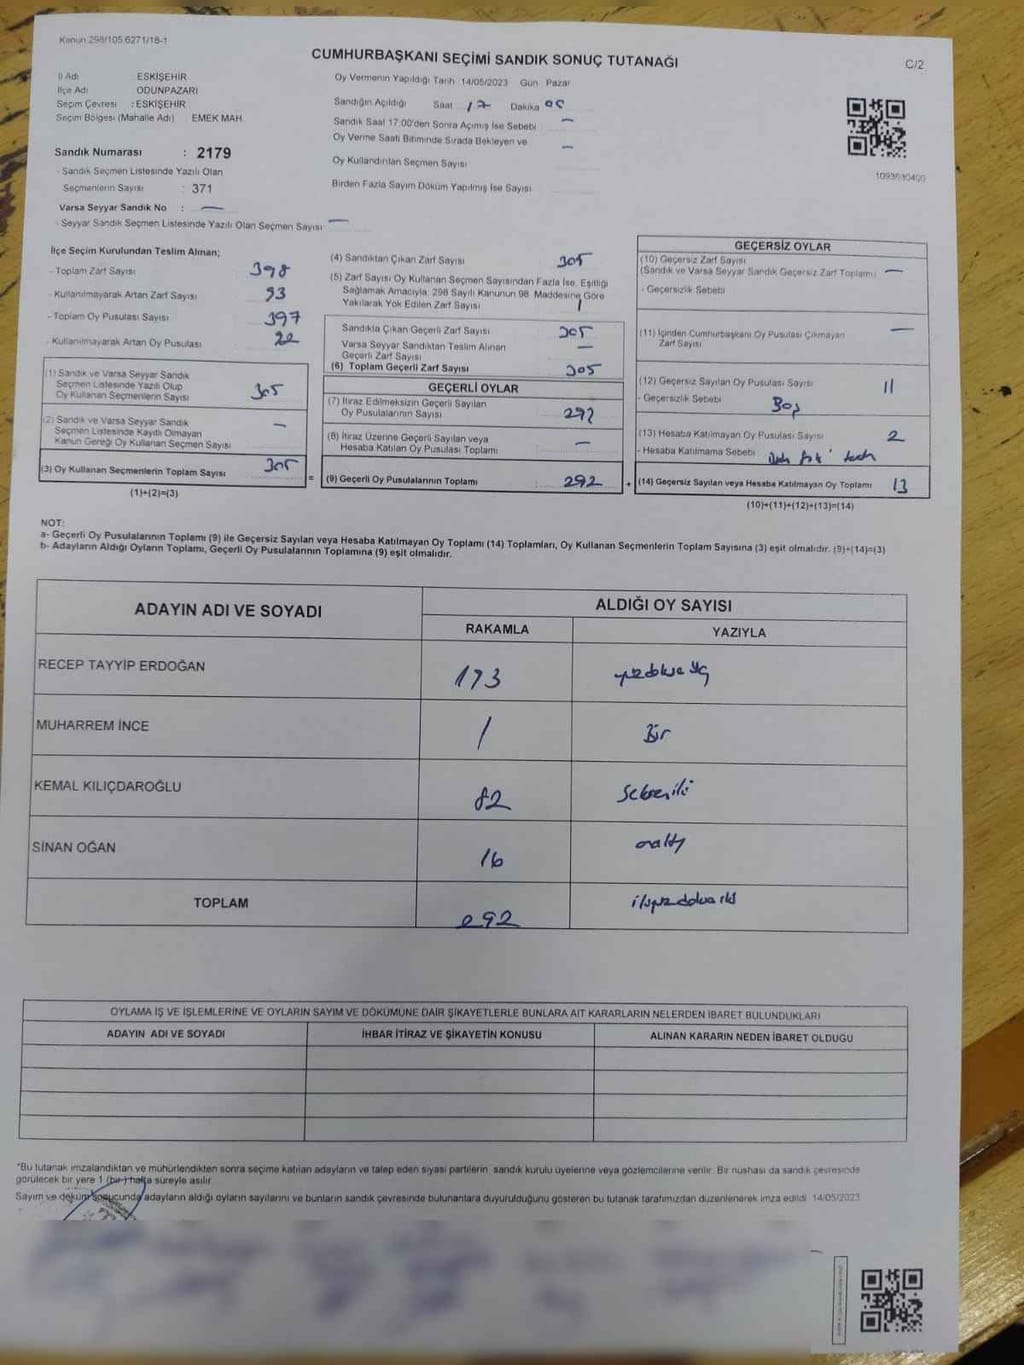 Kanun 298/105 6271/18-1
CUMHURBAŞKANI SEÇİMİ SANDIK SONUÇ TUTANAĞI
C/2
İl Adı ESKİŞEHİR
İlçe Adı ODUNPAZARI
Seçim Çevresi : ESKİŞEHİR
Seçim Bölgesi (Mahalle Adı) EMEK MAH.
Sandık Numarası : 2179
- Sandık Seçmen Listesinde Yazılı Olan
Seçmenlerin Sayısı : 371
Varsa Seyyar Sandık No : —
- Seyyar Sandık Seçmen Listesinde Yazılı Olan Seçmen Sayısı —
Oy Vermenin Yapıldığı Tarih 14/05/2023 Gün Pazar
Sandığın Açıldığı Saat 17 Dakika 05
Sandık Saat 17.00'den Sonra Açımış İse Sebebi —
Oy Verme Saati Bitiminde Sırada Bekleyen ve —
Oy Kullandırılan Seçmen Sayısı
Birden Fazla Sayım Döküm Yapılmış İse Sayısı
İlçe Seçim Kurulundan Teslim Alınan;
- Toplam Zarf Sayısı 398
- Kullanılmayarak Artan Zarf Sayısı 93
- Toplam Oy Pusulası Sayısı 397
- Kullanılmayarak Artan Oy Pusulası
(1) Sandık ve Varsa Seyyar Sandık
Seçmen Listesinde Yazılı Olup
Oy Kullanan Seçmenlerin Sayısı 305
(2) Sandık ve Varsa Seyyar Sandık
Seçmen Listesinde Kayıtlı Olmayan
Kanun Gereği Oy Kullanan Seçmen Sayısı —
(3) Oy Kullanan Seçmenlerin Toplam Sayısı 305
(1)+(2)=(3)
(4) Sandıktan Çıkan Zarf Sayısı 305
(5) Zarf Sayısı Oy Kullanan Seçmen Sayısından Fazla İse, Eşitliği
Sağlamak Amacıyla; 298 Sayılı Kanunun 98. Maddesine Göre
Yakılarak Yok Edilen Zarf Sayısı /
Sandıkta Çıkan Geçerli Zarf Sayısı 305
Varsa Seyyar Sandıktan Teslim Alınan
Geçerli Zarf Sayısı —
(6) Toplam Geçerli Zarf Sayısı 305
GEÇERLİ OYLAR
(7) İtiraz Edilmeksizin Geçerli Sayılan
Oy Pusulalarının Sayısı 292
(8) İtiraz Üzerine Geçerli Sayılan veya
Hesaba Katılan Oy Pusulası Toplamı —
= (9) Geçerli Oy Pusulalarının Toplamı 292
GEÇERSİZ OYLAR
(10) Geçersiz Zarf Sayısı
(Sandık ve Varsa Seyyar Sandık Geçersiz Zarf Toplamı) —
- Geçersizlik Sebebi
(11) İçinden Cumhurbaşkanı Oy Pusulası Çıkmayan
Zarf Sayısı —
(12) Geçersiz Sayılan Oy Pusulası Sayısı 11
- Geçersizlik Sebebi Boş
(13) Hesaba Katılmayan Oy Pusulası Sayısı 2
- Hesaba Katılmama Sebebi
+ (14) Geçersiz Sayılan veya Hesaba Katılmayan Oy Toplamı 13
(10)+(11)+(12)+(13)=(14)
NOT:
a- Geçerli Oy Pusulalarının Toplamı (9) ile Geçersiz Sayılan veya Hesaba Katılmayan Oy Toplamı (14) Toplamları, Oy Kullanan Seçmenlerin Toplam Sayısına (3) eşit olmalıdır. (9)+(14)=(3)
b- Adayların Aldığı Oyların Toplamı, Geçerli Oy Pusulalarının Toplamına (9) eşit olmalıdır.
ADAYIN ADI VE SOYADI ALDIĞI OY SAYISI
RAKAMLA YAZIYLA
RECEP TAYYİP ERDOĞAN 193
MUHARREM İNCE 1 Bir
KEMAL KILIÇDAROĞLU 82 Seksen iki
SİNAN OĞAN 16 onaltı
TOPLAM 292
OYLAMA İŞ VE İŞLEMLERİNE VE OYLARIN SAYIM VE DÖKÜMÜNE DAİR ŞİKAYETLERLE BUNLARA AİT KARARLARIN NELERDEN İBARET BULUNDUKLARI
ADAYIN ADI VE SOYADI İHBAR İTİRAZ VE ŞİKAYETİN KONUSU ALINAN KARARIN NEDEN İBARET OLDUĞU
*Bu tutanak imzalandıktan ve mühürlendikten sonra seçime katılan adayların ve talep eden siyasi partilerin sandık kurulu üyelerine veya gözlemcilerine verilir. Bir nüshası da sandık çevresinde
görülecek bir yere 1 (bir) hafta süreyle asılır.
Sayım ve döküm sonucunda adayların aldığı oyların sayılarını ve bunların sandık çevresinde bulunanlara duyurulduğunu gösteren bu tutanak tarafımızdan düzenlenerek imza edildi 14/05/2023